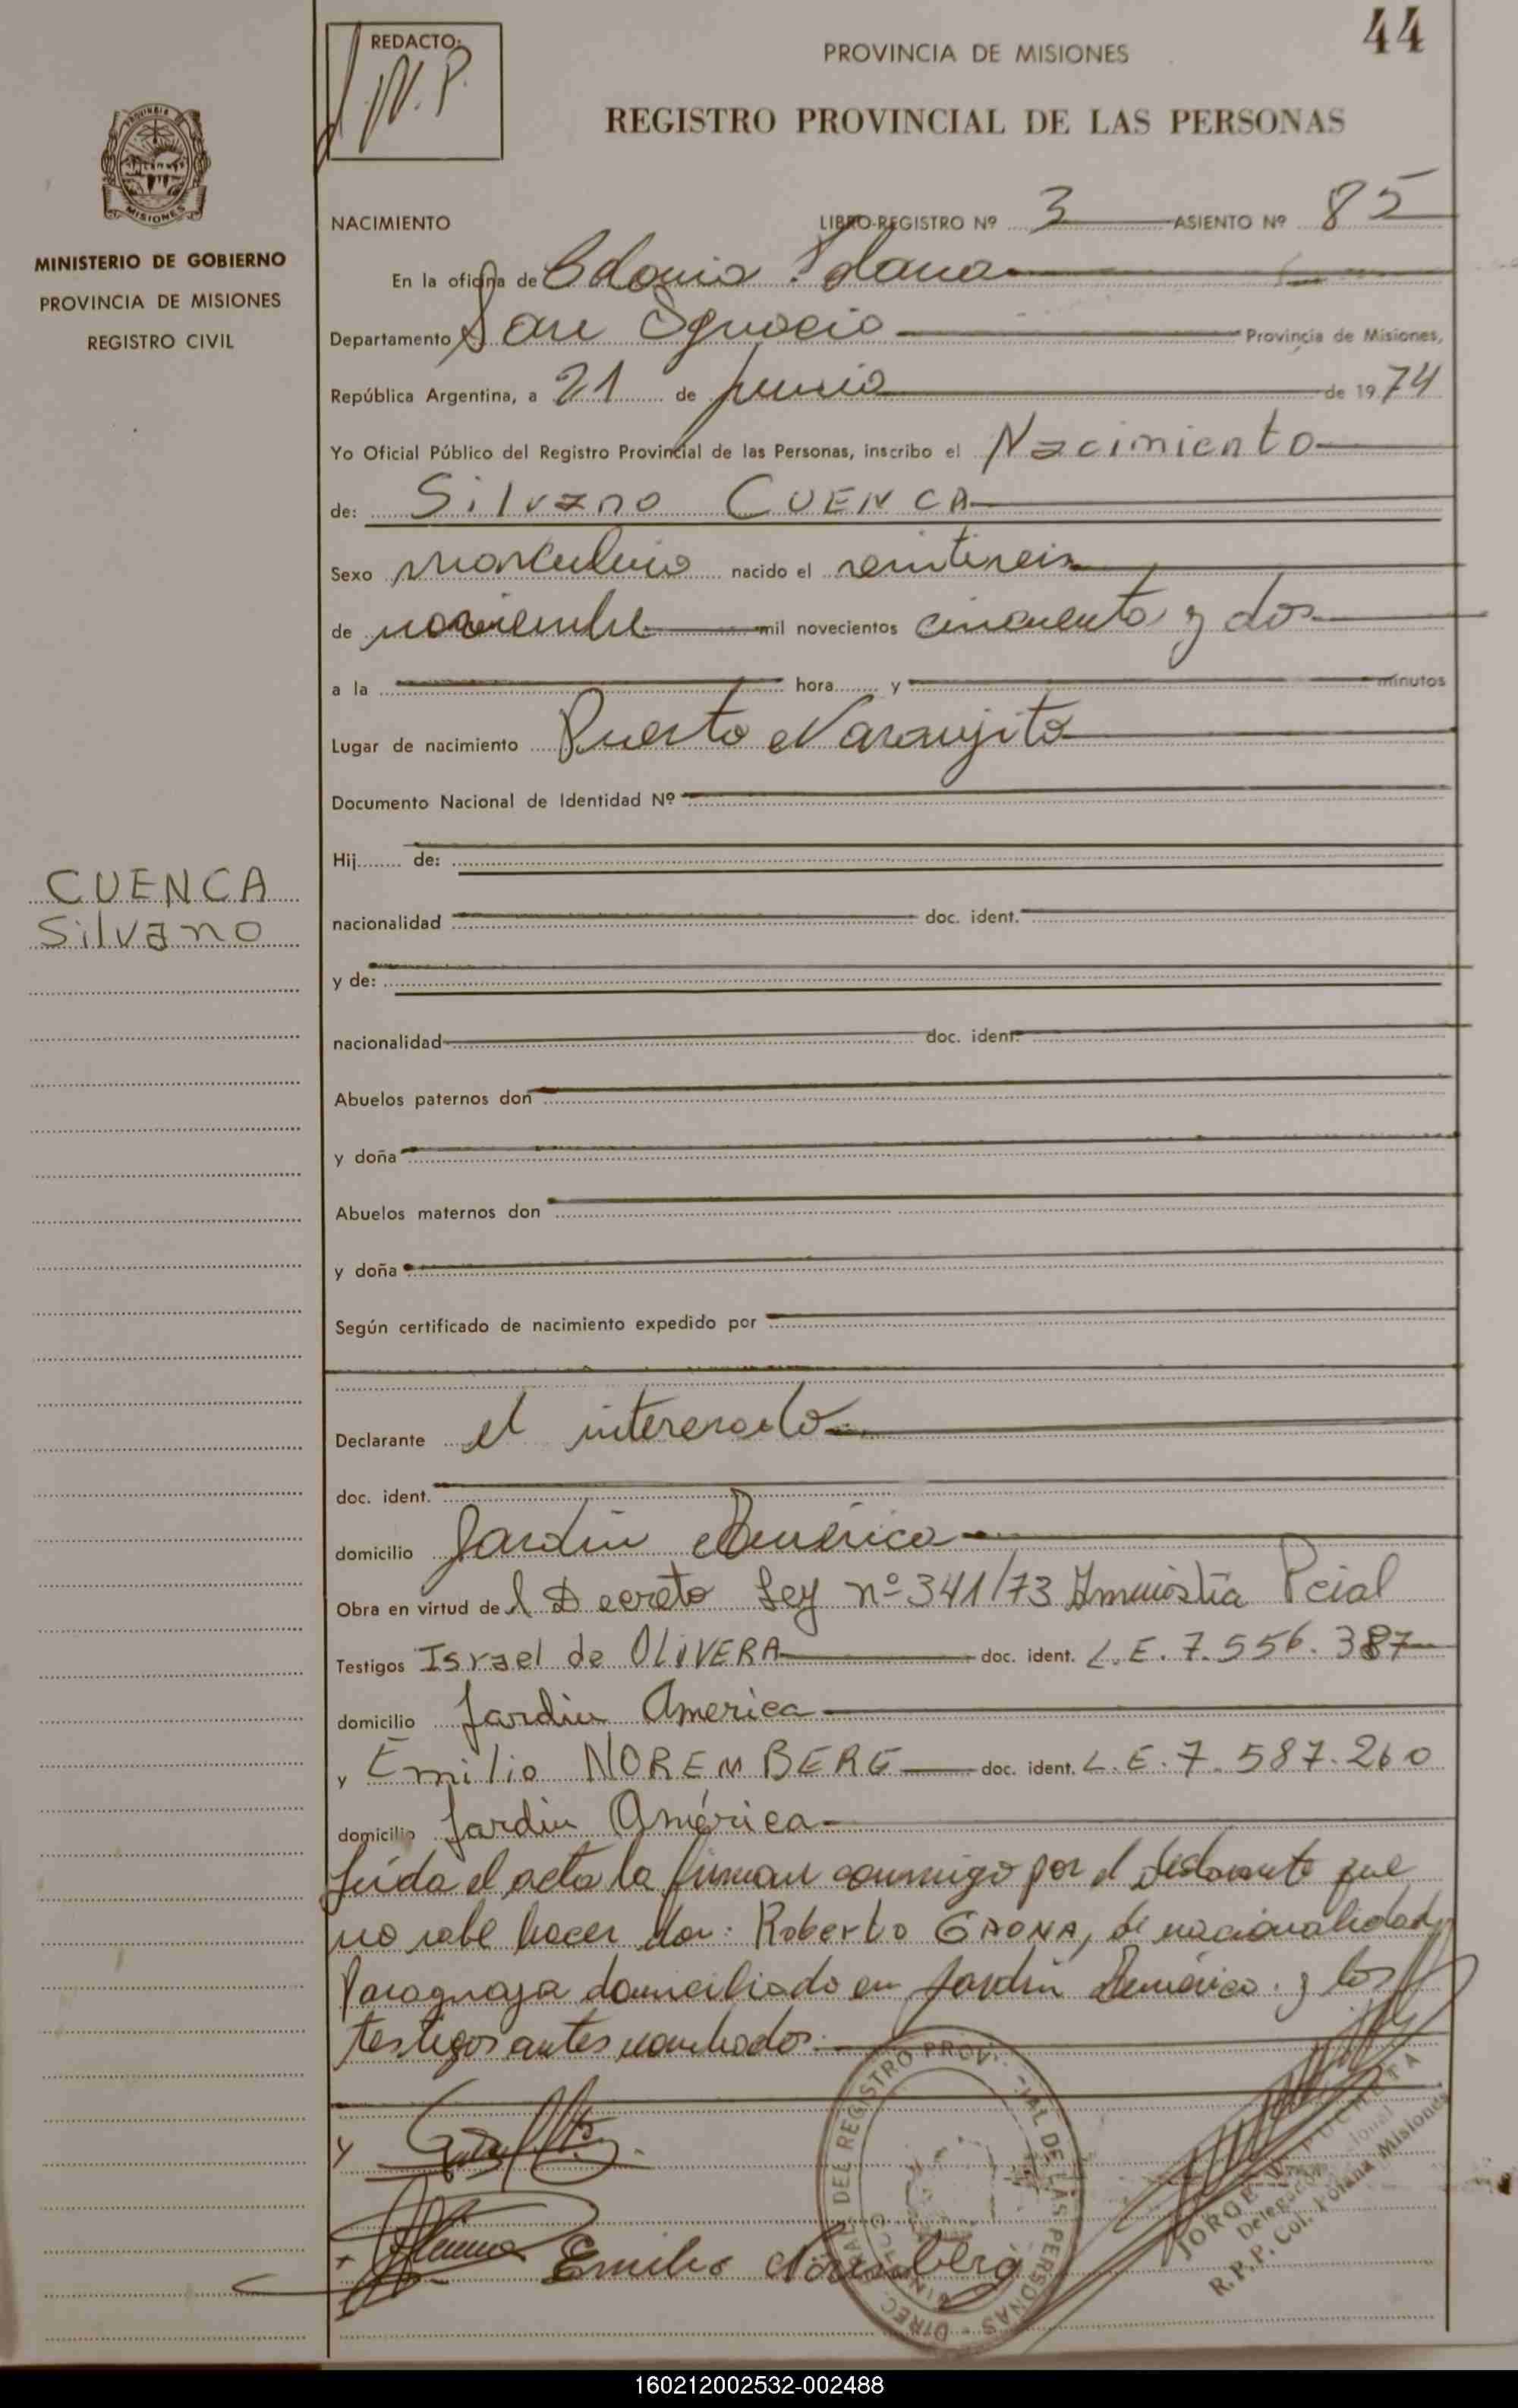 44
REDACTO:
N. P.
PROVINCIA DE MISIONES
REGISTRO PROVINCIAL DE LAS PERSONAS
MISIONES
MINISTERIO DE GOBIERNO
PROVINCIA DE MISIONES
REGISTRO CIVIL
CUENCA
Silvano
NACIMIENTO LIBRO-REGISTRO Nº 3 ASIENTO Nº 85
En la oficina de Colonia Polana
Departamento San Ignacio Provincia de Misiones,
República Argentina, a 21 de junio de 1974
Yo Oficial Público del Registro Provincial de las Personas, inscribo el Nacimiento
de: Silvano CUENCA
Sexo masculino nacido el veintiseis
de noviembre mil novecientos cincuenta y dos
a la hora y minutos
Lugar de nacimiento Puerto Naranjito
Documento Nacional de Identidad Nº
Hij de:
nacionalidad doc. ident.
y de:
nacionalidad doc. ident.
Abuelos paternos don
y doña
Abuelos maternos don
y doña
Según certificado de nacimiento expedido por
Declarante el interesado
doc. ident.
domicilio Jardín América
Obra en virtud de l Decreto Ley nº 341/73 Amnistía Pcial
Testigos Israel de OLIVERA doc. ident. L.E. 7.556.387
domicilio Jardin America
y Emilio NOREMBERG doc. ident. L.E. 7.587.260
domicilio Jardin América
Leída el acta la firman conmigo por el declarante que
no sabe hacer don: Roberto GAONA, de nacionalidad
Paraguaya domiciliado en Jardín América y los
testigos antes nombrados.
Emilio Noremberg
DIREC. GRAL. DEL REGISTRO PROVINCIAL DE LAS PERSONAS
JORGE
R.P.P. Col. Polana Misiones
160212002532-002488